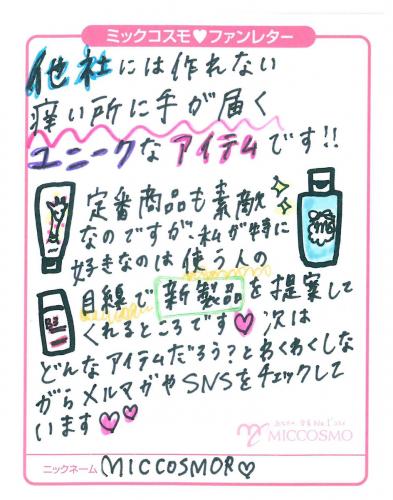 ミックコスモ♥ファンレター
他社には作れない
痒い所に手が届く
ユニークなアイテムです!!
定番商品も素敵
なのですが、私が特に
好きなのは使う人の
目線で新製品を提案して
くれるところです♥次は
どんなアイテムだろう?とわくわくしな
がらメルマガやSNSをチェックして
います♥♥
MICCOSMO
ニックネーム MICCOSMOR♡